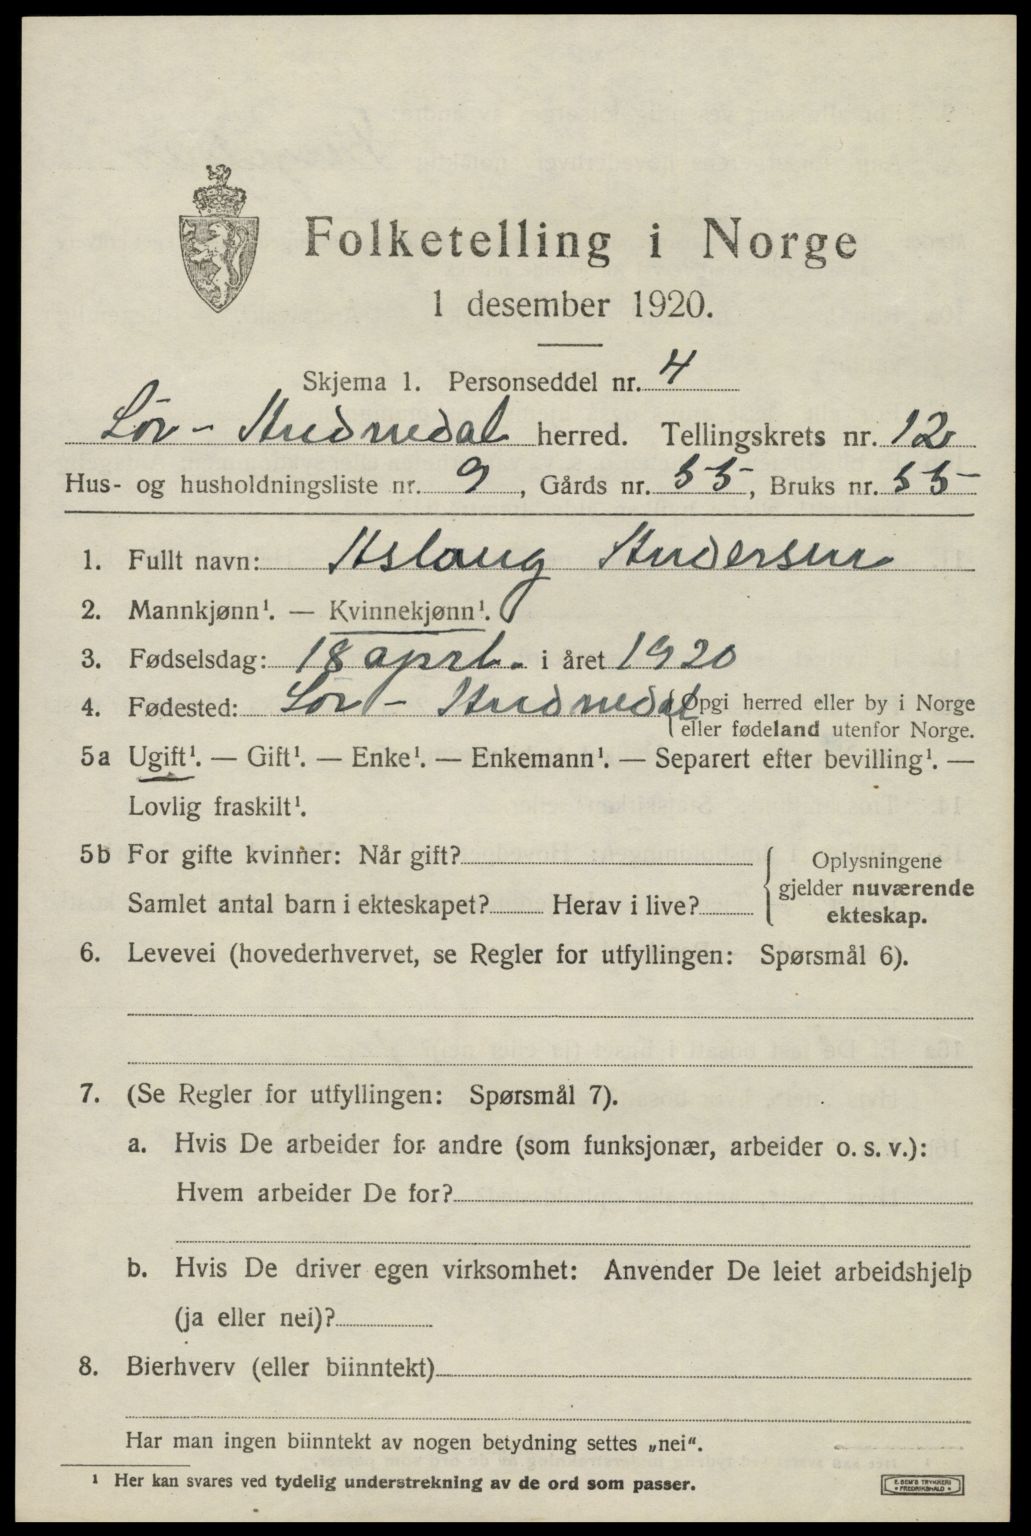 Folketelling i Norge
1 desember 1920.
Skjema 1. Personseddel nr. 4
Sør-Audnedal herred. Tellingskrets nr. 12
Hus- og husholdningsliste nr. 9, Gårds nr. 55, Bruks nr. 55
1. Fullt navn: Aslaug Andersen
2. Mannkjønn¹. — Kvinnekjønn¹.
3. Fødselsdag: 18 april. i året 1920
4. Fødested: Sør-Audnedal {Opgi herred eller by i Norge
eller fødeland utenfor Norge.
5a Ugift¹. — Gift¹. — Enke¹. — Enkemann¹. — Separert efter bevilling¹. —
Lovlig fraskilt¹.
5b For gifte kvinner: Når gift? { Oplysningene
gjelder nuværende
Samlet antal barn i ekteskapet? Herav i live? ekteskap.
6. Levevei (hovederhvervet, se Regler for utfyllingen: Spørsmål 6).
7. (Se Regler for utfyllingen: Spørsmål 7).
a. Hvis De arbeider for andre (som funksjonær, arbeider o. s. v.):
Hvem arbeider De for?
b. Hvis De driver egen virksomhet: Anvender De leiet arbeidshjelp
(ja eller nei)?
8. Bierhverv (eller biinntekt)
Har man ingen biinntekt av nogen betydning settes „nei".
¹ Her kan svares ved tydelig understrekning av de ord som passer.
E. SEM'S TRYKKERI
• FREDRIKSHALD •